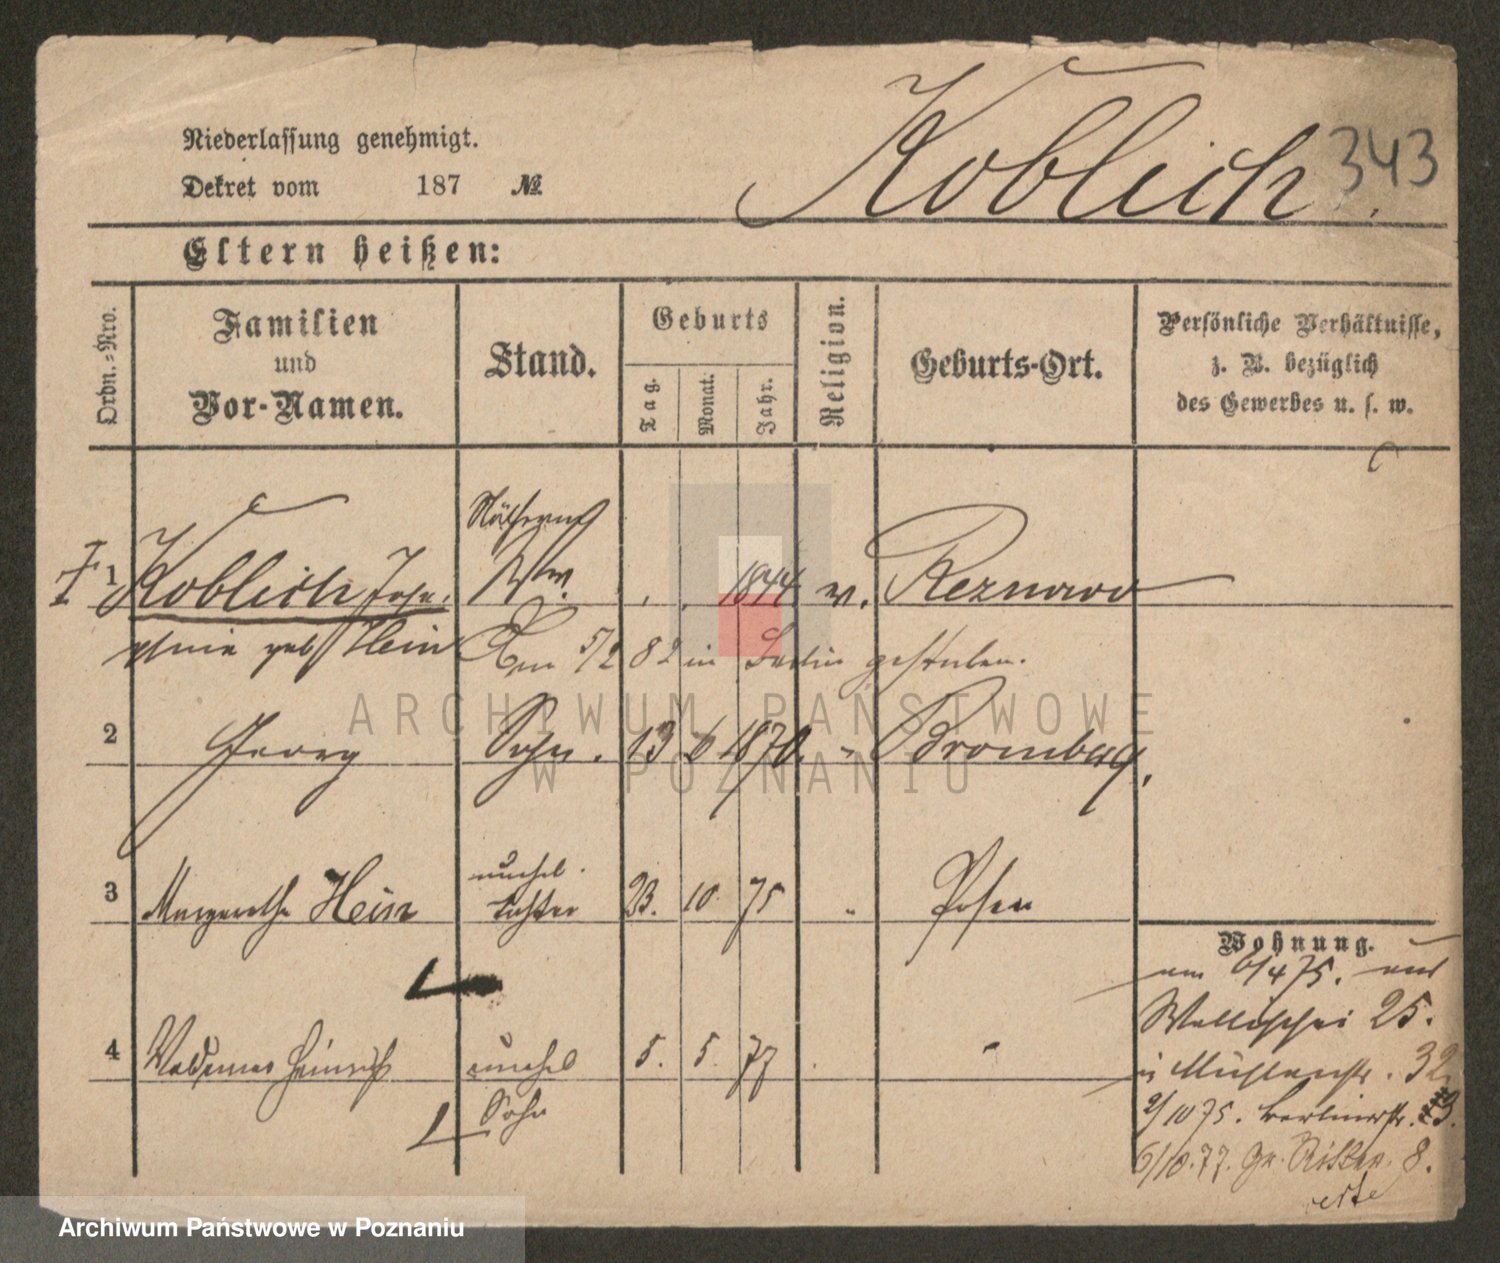 Niederlassung genehmigt.
Dekret vom 187 №
Koblich.
343
Eltern heißen:
Ordn.-Nro.
Familien und Vor-Namen.
Stand.
Geburts
Tag.
Monat.
Jahr.
Religion.
Geburts-Ort.
Persönliche Verhältnisse,
z. B. bezüglich
des Gewerbes u. s. w.
1 Koblich Wtw. 1844 Reznowo
geb Hein Am 5/2 82 in Berlin gestorben.
2 Georg Sohn. 13 6 1870. " Bromberg.
3 Margarethe Hein unehel. Tochter 23. 10 75 " Posen
4 Waldemar Heinrich unehel Sohn 5. 5. 77 "
Wohnung.
am 6/4 75.
Wallischei 25.
Mühlenstr. 32
2/10 75. Berlinerstr.
6/10. 77. Gr. Ritter 8.
ARCHIWUM PAŃSTWOWE
W POZNANIU
Archiwum Państwowe w Poznaniu